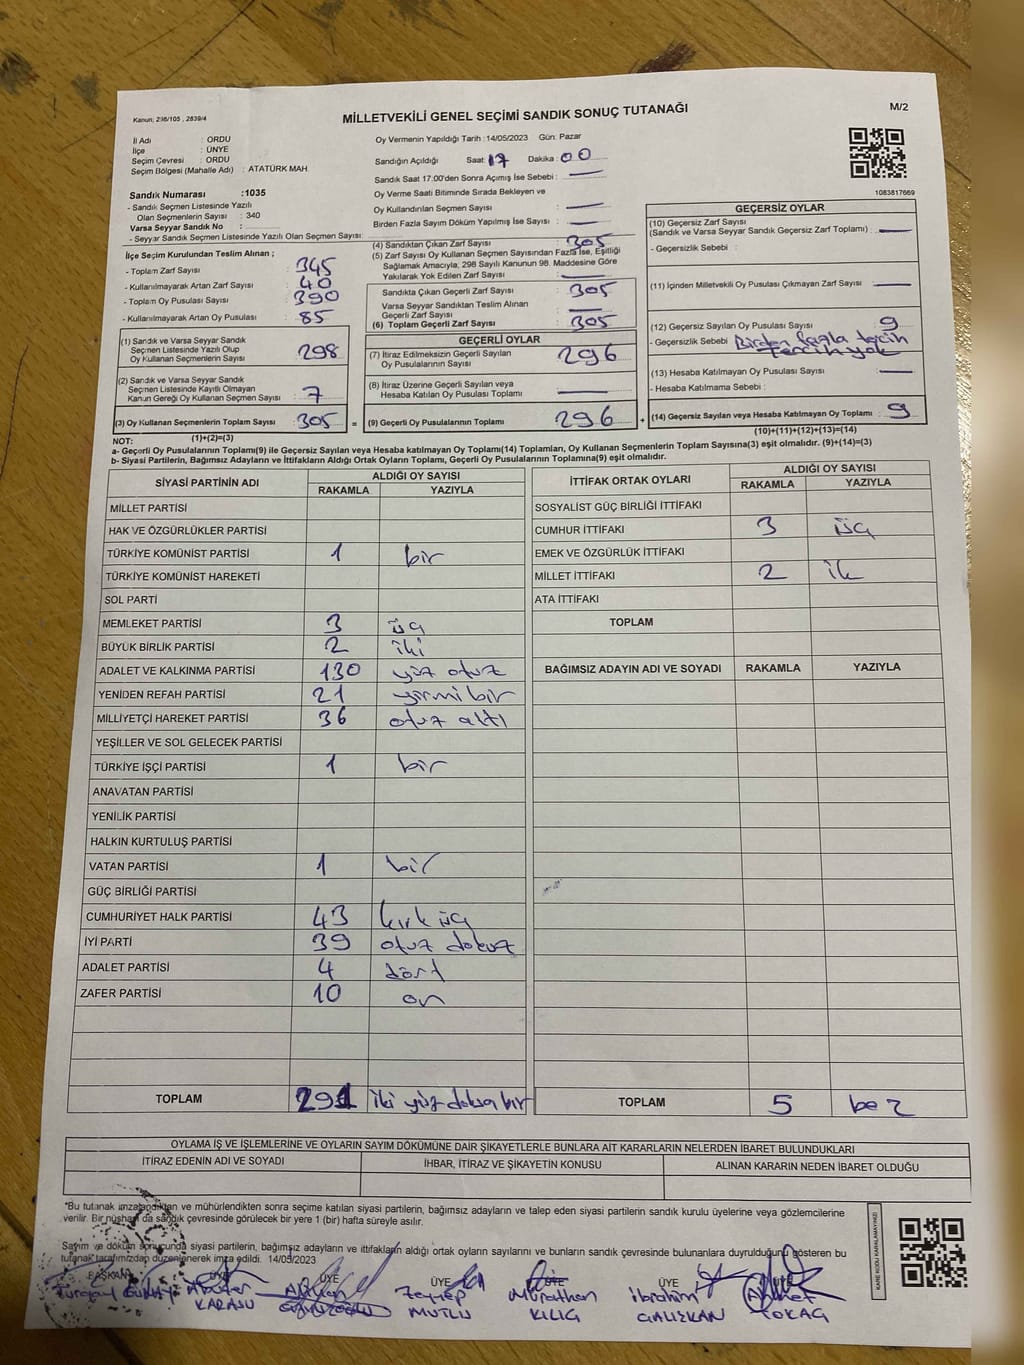 Kanun; 298/105 , 2839/4
MİLLETVEKİLİ GENEL SEÇİMİ SANDIK SONUÇ TUTANAĞI
M/2
İl Adı : ORDU
İlçe : ÜNYE
Seçim Çevresi : ORDU
Seçim Bölgesi (Mahalle Adı) : ATATÜRK MAH.
Sandık Numarası :1035
- Sandık Seçmen Listesinde Yazılı
Olan Seçmenlerin Sayısı : 340
Varsa Seyyar Sandık No :
- Seyyar Sandık Seçmen Listesinde Yazılı Olan Seçmen Sayısı:
Oy Vermenin Yapıldığı Tarih :14/05/2023 Gün: Pazar
Sandığın Açıldığı Saat: 17 Dakika : 00
Sandık Saat 17:00'den Sonra Açımış İse Sebebi :
Oy Verme Saati Bitiminde Sırada Bekleyen ve
Oy Kullandırılan Seçmen Sayısı :
Birden Fazla Sayım Döküm Yapılmış İse Sayısı :
1083817669
İlçe Seçim Kurulundan Teslim Alınan ;
- Toplam Zarf Sayısı : 345
- Kullanılmayarak Artan Zarf Sayısı : 40
- Toplam Oy Pusulası Sayısı : 390
- Kullanılmayarak Artan Oy Pusulası : 85
(1) Sandık ve Varsa Seyyar Sandık
Seçmen Listesinde Yazılı Olup
Oy Kullanan Seçmenlerin Sayısı : 298
(2) Sandık ve Varsa Seyyar Sandık
Seçmen Listesinde Kayıtlı Olmayan
Kanun Gereği Oy Kullanan Seçmen Sayısı : 7
(3) Oy Kullanan Seçmenlerin Toplam Sayısı : 305 =
(1)+(2)=(3)
(4) Sandıktan Çıkan Zarf Sayısı : 305
(5) Zarf Sayısı Oy Kullanan Seçmen Sayısından Fazla İse, Eşitliği
Sağlamak Amacıyla; 298 Sayılı Kanunun 98. Maddesine Göre
Yakılarak Yok Edilen Zarf Sayısı :
Sandıkta Çıkan Geçerli Zarf Sayısı : 305
Varsa Seyyar Sandıktan Teslim Alınan
Geçerli Zarf Sayısı :
(6) Toplam Geçerli Zarf Sayısı : 305
GEÇERLİ OYLAR
(7) İtiraz Edilmeksizin Geçerli Sayılan
Oy Pusulalarının Sayısı : 296
(8) İtiraz Üzerine Geçerli Sayılan veya
Hesaba Katılan Oy Pusulası Toplamı :
(9) Geçerli Oy Pusulalarının Toplamı : 296 +
GEÇERSİZ OYLAR
(10) Geçersiz Zarf Sayısı
(Sandık ve Varsa Seyyar Sandık Geçersiz Zarf Toplamı) :
- Geçersizlik Sebebi :
(11) İçinden Milletvekili Oy Pusulası Çıkmayan Zarf Sayısı :
(12) Geçersiz Sayılan Oy Pusulası Sayısı : 9
- Geçersizlik Sebebi : Birden fazla tercih
Tercih yok
(13) Hesaba Katılmayan Oy Pusulası Sayısı :
- Hesaba Katılmama Sebebi :
(14) Geçersiz Sayılan veya Hesaba Katılmayan Oy Toplamı : 9
(10)+(11)+(12)+(13)=(14)
NOT:
a- Geçerli Oy Pusulalarının Toplamı(9) ile Geçersiz Sayılan veya Hesaba katılmayan Oy Toplamı(14) Toplamları, Oy Kullanan Seçmenlerin Toplam Sayısına(3) eşit olmalıdır. (9)+(14)=(3)
b- Siyasi Partilerin, Bağımsız Adayların ve İttifakların Aldığı Ortak Oyların Toplamı, Geçerli Oy Pusulalarının Toplamına(9) eşit olmalıdır.
SİYASİ PARTİNİN ADI ALDIĞI OY SAYISI
RAKAMLA YAZIYLA
MİLLET PARTİSİ
HAK VE ÖZGÜRLÜKLER PARTİSİ
TÜRKİYE KOMÜNİST PARTİSİ 1 bir
TÜRKİYE KOMÜNİST HAREKETİ
SOL PARTİ
MEMLEKET PARTİSİ 3 üç
BÜYÜK BİRLİK PARTİSİ 2 iki
ADALET VE KALKINMA PARTİSİ 130 yüz otuz
YENİDEN REFAH PARTİSİ 21 yirmi bir
MİLLİYETÇİ HAREKET PARTİSİ 36 otuz altı
YEŞİLLER VE SOL GELECEK PARTİSİ
TÜRKİYE İŞÇİ PARTİSİ 1 bir
ANAVATAN PARTİSİ
YENİLİK PARTİSİ
HALKIN KURTULUŞ PARTİSİ
VATAN PARTİSİ 1 bir
GÜÇ BİRLİĞİ PARTİSİ
CUMHURİYET HALK PARTİSİ 43 kırk üç
İYİ PARTİ 39 otuz dokuz
ADALET PARTİSİ 4 dört
ZAFER PARTİSİ 10 on
TOPLAM 291 iki yüz doksa bir
İTTİFAK ORTAK OYLARI ALDIĞI OY SAYISI
RAKAMLA YAZIYLA
SOSYALİST GÜÇ BİRLİĞİ İTTİFAKI
CUMHUR İTTİFAKI 3 üç
EMEK VE ÖZGÜRLÜK İTTİFAKI
MİLLET İTTİFAKI 2 ik
ATA İTTİFAKI
TOPLAM
BAĞIMSIZ ADAYIN ADI VE SOYADI RAKAMLA YAZIYLA
TOPLAM 5 beş
OYLAMA İŞ VE İŞLEMLERİNE VE OYLARIN SAYIM DÖKÜMÜNE DAİR ŞİKAYETLERLE BUNLARA AİT KARARLARIN NELERDEN İBARET BULUNDUKLARI
İTİRAZ EDENİN ADI VE SOYADI İHBAR, İTİRAZ VE ŞİKAYETİN KONUSU ALINAN KARARIN NEDEN İBARET OLDUĞU
*Bu tutanak imzalandıktan ve mühürlendikten sonra seçime katılan siyasi partilerin, bağımsız adayların ve talep eden siyasi partilerin sandık kurulu üyelerine veya gözlemcilerine
verilir. Bir nüshası da sandık çevresinde görülecek bir yere 1 (bir) hafta süreyle asılır.
Sayım ve döküm sonucunda siyasi partilerin, bağımsız adayların ve ittifakların aldığı ortak oyların sayılarını ve bunların sandık çevresinde bulunanlara duyrulduğunu gösteren bu
tutanak tarafımızdan düzenlenerek imza edildi. 14/05/2023
BAŞKAN ÜYE ÜYE ÜYE ÜYE ÜYE ÜYE
Turgay Zeynep Murathan İbrahim Ahmet
KARASU MUTLU KILIÇ ÇALIŞKAN TOKAÇ
KARE KODU KARALAMAYINIZ!